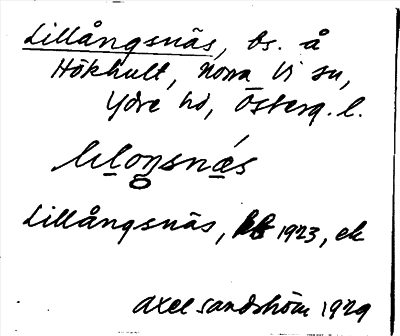 Lillångsnäs, bs. å
Hökhult, Norra Vi sn,
Ydre hd, Österg. l.
Lillångsnäs, 1923, ek
Axel Sandström 1929